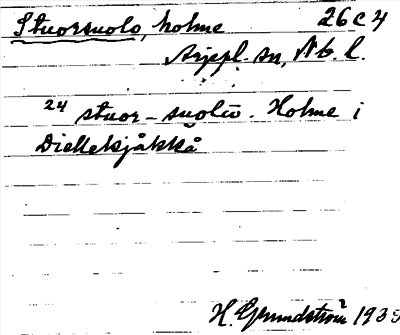 Stuorsuolo, holme 26 C 4
Arjepl. sn, Nb. l.
24 stuor-suolŭv. Holme i
Diellekjåkkå
H. Grundström 1939